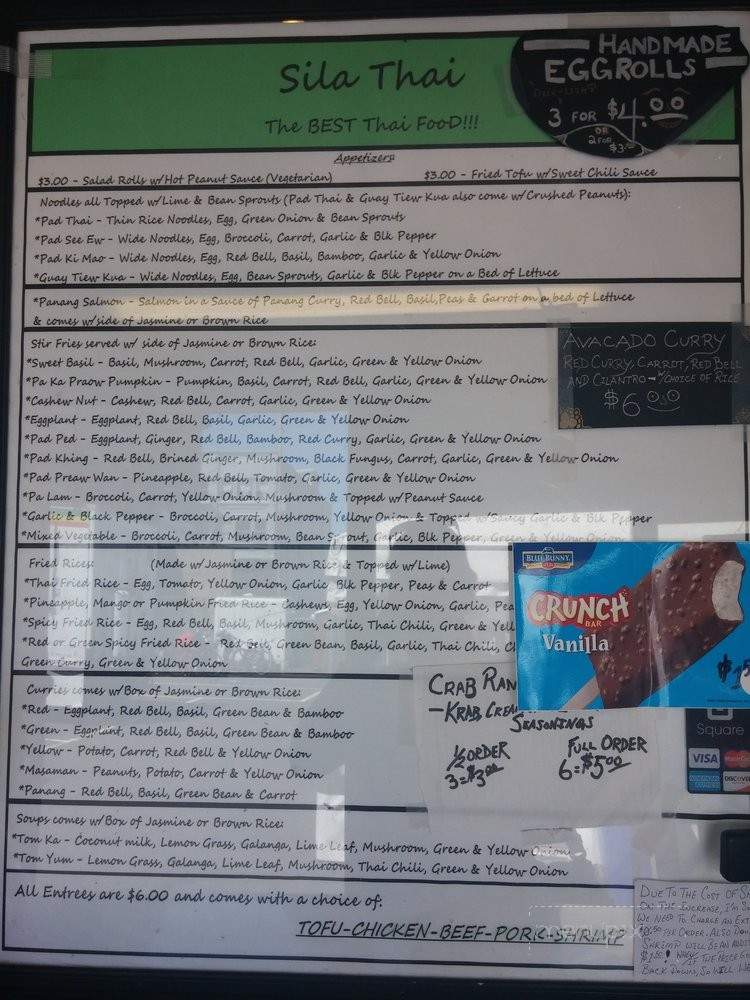 Sila Thai
The BEST Thai FooD!!!
HANDMADE
EGGROLLS
3 FOR $4.00
OR
2 FOR
$3.00
Appetizers
$3.00 - Salad Rolls w/Hot Peanut Sauce (Vegetarian) $3.00 - Fried Tofu w/Sweet Chili Sauce
Noodles all Topped w/Lime & Bean Sprouts (Pad Thai & Guay Tiew Kua also come w/Crushed Peanuts):
*Pad Thai - Thin Rice Noodles, Egg, Green Onion & Bean Sprouts
*Pad See Ew - Wide Noodles, Egg, Broccoli, Carrot, Garlic & Blk Pepper
*Pad Ki Mao - Wide Noodles, Egg, Red Bell, Basil, Bamboo, Garlic & Yellow Onion
*Guay Tiew Kua - Wide Noodles, Egg, Bean Sprouts, Garlic & Blk Pepper on a Bed of Lettuce
*Panang Salmon - Salmon in a Sauce of Panang Curry, Red Bell, Basil, Peas & Carrot on a bed of Lettuce
& comes w/side of Jasmine or Brown Rice
Stir Fries served w/ side of Jasmine or Brown Rice:
*Sweet Basil - Basil, Mushroom, Carrot, Red Bell, Garlic, Green & Yellow Onion
*Pa Ka Praow Pumpkin - Pumpkin, Basil, Carrot, Red Bell, Garlic, Green & Yellow Onion
*Cashew Nut - Cashew, Red Bell, Carrot, Garlic, Green & Yellow Onion
*Eggplant - Eggplant, Red Bell, Basil, Garlic, Green & Yellow Onion
*Pad Ped - Eggplant, Ginger, Red Bell, Bamboo, Red Curry, Garlic, Green & Yellow Onion
*Pad Khing - Red Bell, Brined Ginger, Mushroom, Black Fungus, Carrot, Garlic, Green & Yellow Onion
*Pad Preaw Wan - Pineapple, Red Bell, Tomato, Garlic, Green & Yellow Onion
*Pa Lam - Broccoli, Carrot, Yellow Onion, Mushroom & Topped w/Peanut Sauce
*Garlic & Black Pepper - Broccoli, Carrot, Mushroom, Yellow Onion & Topped w/Saucy Garlic & Blk Pepper
*Mixed Vegetable - Broccoli, Carrot, Mushroom, Bean Sprout, Garlic, Blk Pepper, Green & Yellow Onion
AVACADO CURRY
RED CURRY, CARROT, RED BELL
AND CILANTRO - W/CHOICE OF RICE
$6.00
Fried Rices: (Made w/Jasmine or Brown Rice & Topped w/Lime)
*Thai Fried Rice - Egg, Tomato, Yellow Onion, Garlic, Blk Pepper, Peas & Carrot
*Pineapple, Mango or Pumpkin Fried Rice - Cashews, Egg, Yellow Onion, Garlic, Pea
*Spicy Fried Rice - Egg, Red Bell, Basil, Mushroom, Garlic, Thai Chili, Green & Yel
*Red or Green Spicy Fried Rice - Red Bell, Green Bean, Basil, Garlic, Thai Chili,
Green Curry, Green & Yellow Onion
BLUE BUNNY
CRUNCH
BAR
Vanilla
Curries comes w/Box of Jasmine or Brown Rice:
*Red - Eggplant, Red Bell, Basil, Green Bean & Bamboo
*Green - Eggplant, Red Bell, Basil, Green Bean & Bamboo
*Yellow - Potato, Carrot, Red Bell & Yellow Onion
*Masaman - Peanuts, Potato, Carrot & Yellow Onion
*Panang - Red Bell, Basil, Green Bean & Carrot
CRAB RAN
-KRAB CREA
SEASONINGS
½ ORDER FULL ORDER
3=$3.00 6=$5.00
Square
VISA
DISCOVER
Soups comes w/Box of Jasmine or Brown Rice:
*Tom Ka - Coconut milk, Lemon Grass, Galanga, Lime Leaf, Mushroom, Green & Yellow Onion
*Tom Yum - Lemon Grass, Galanga, Lime Leaf, Mushroom, Thai Chili, Green & Yellow Onion
All Entrees are $6.00 and comes with a choice of:
TOFU-CHICKEN-BEEF-PORK-SHRIMP
DUE TO THE COST OF SH
ON THE INCREASE, I'M S
WE NEED TO CHARGE AN EXT
PER ORDER. ALSO
SHRIMP WILL BE AN
IF THE PRICE
BACK DOWN, SO WILL